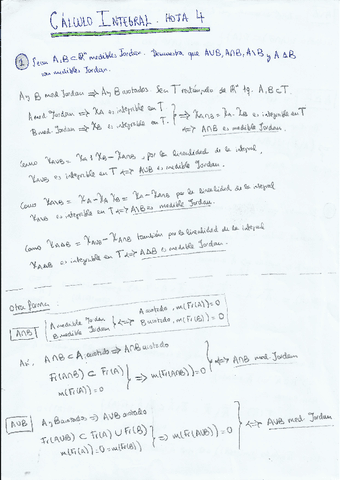 CÁLCULO INTEGRAL. HOJA 4
① Sean A, B ⊂ ℝⁿ medibles Jordan. Demuestra que A∪B, A∩B, A\B y A△B
son medibles Jordan.
A y B med. Jordan ⟹ A y B acotados. Sea T rectángulo de ℝⁿ tq. A, B ⊂ T
A med. Jordan ⟹ χ_A es integrable en T. } ⟹ χ_{A∩B} = χ_A · χ_B es integrable en T
B med. Jordan ⟹ χ_B es integrable en T. ⟺ A∩B es medible Jordan.
Como χ_{A∪B} = χ_A + χ_B − χ_{A∩B}, por la linealidad de la integral,
χ_{A∪B} es integrable en T ⟺ A∪B es medible Jordan.
Como χ_{A\B} = χ_A − χ_A χ_B = χ_A − χ_{A∩B} por la linealidad de la integral
es integrable en T ⟺ A\B es medible Jordan.
Como χ_{A△B} = χ_{A∪B} − χ_{A∩B} también por la linealidad de la integral
χ_{A△B} es integrable en T ⟺ A△B es medible Jordan.
Otra forma:
A∩B
A medible Jordan } ⟺ { A acotado, m(Fr(A)) = 0
B medible Jordan B acotado, m(Fr(B)) = 0
Así, A∩B ⊂ A, acotado ⟹ A∩B acotado
Fr(A∩B) ⊂ Fr(A) } ⟹ m(Fr(A∩B)) = 0 } ⟺ A∩B med. Jordan
m(Fr(A)) = 0
A∪B
A y B acotados ⟹ A∪B acotado
Fr(A∪B) ⊂ Fr(A) ∪ Fr(B) } ⟹ m(Fr(A∪B)) = 0 } ⟺ A∪B med. Jordan
m(Fr(A)) = 0 = m(Fr(B))